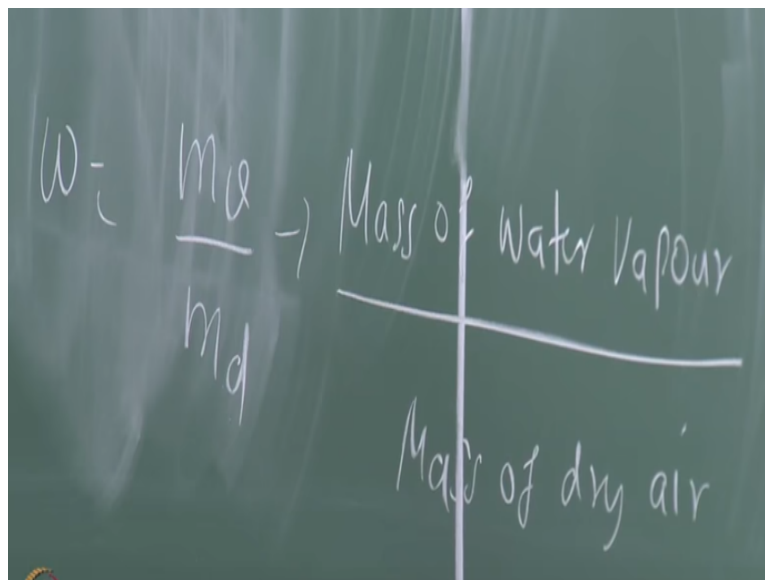 ω = mᵥ → Mass of water vapour
m_d Mass of dry air